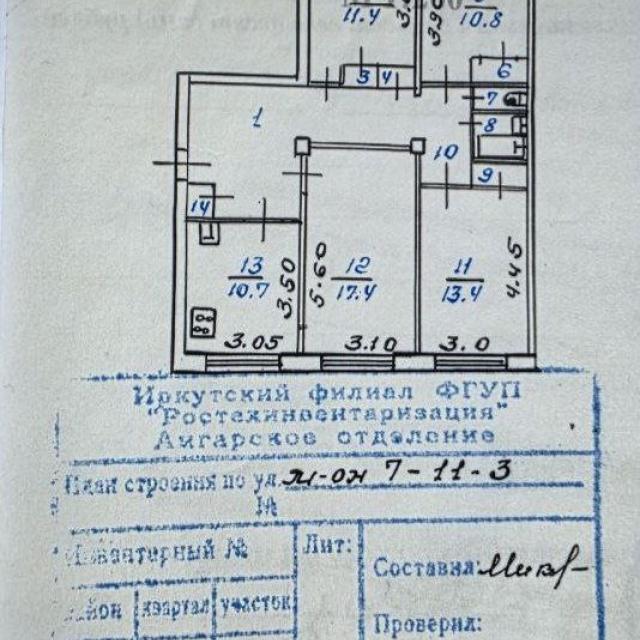 11.4
10.8
3.90
3 4
6
7
8
1
10
9
14
13
10.7
3.50
5.60
12
17.4
11
13.4
4.45
3.05
3.10
3.0
Иркутский филиал ФГУП
"Ростехинвентаризация"
Ангарское отделение
План строения по ул. м-он 7-11-3
№
Инвентарный №
Лит:
Составил:
район квартал участок
Проверил: